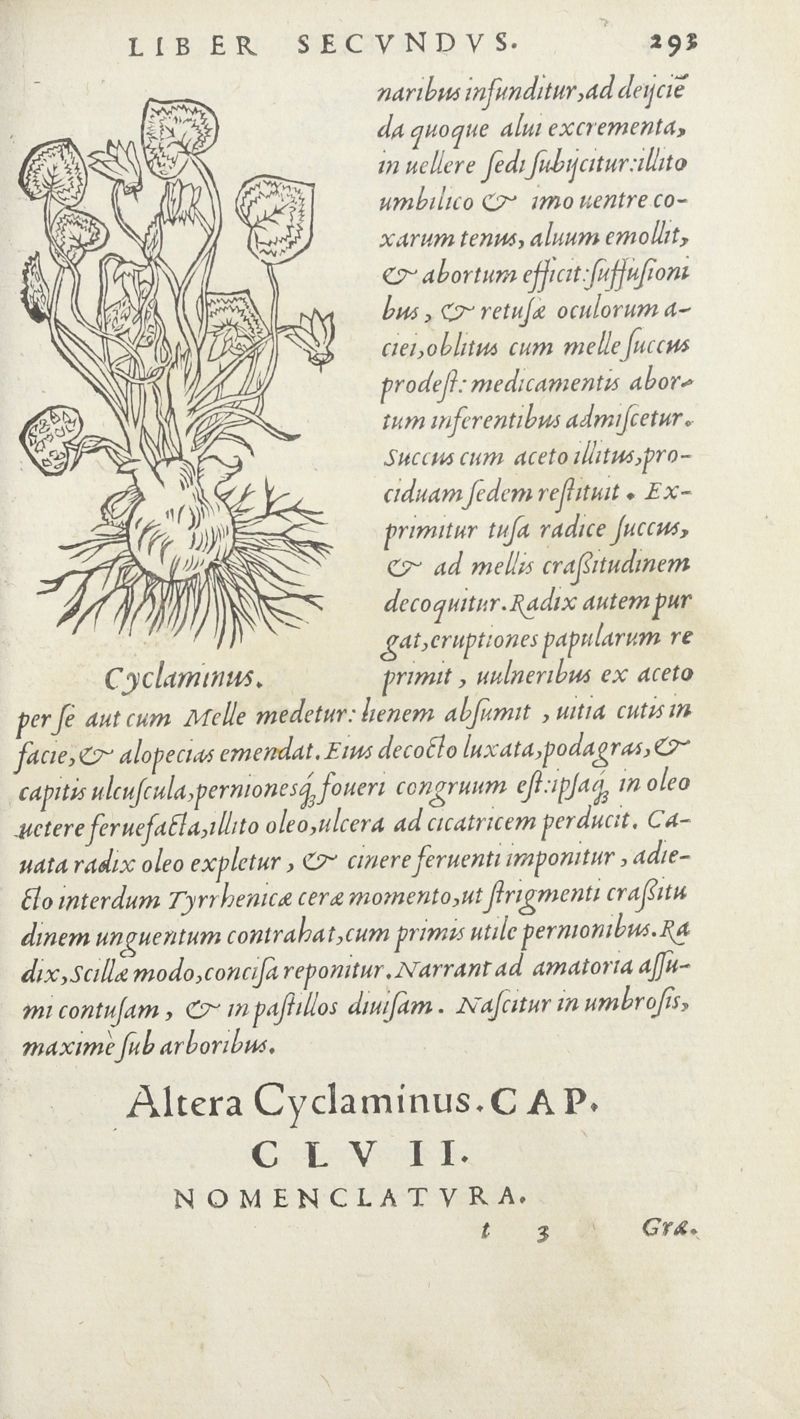 LIBER SECVNDVS. 293
naribus infunditur, ad deijciē
da quoque alui excrementa,
in uellere sedi subijcitur: illito
umbilico & imo uentre co-
xarum tenus, aluum emollit,
& abortum efficit: suffusioni
bus, & retusæ oculorum a-
ciei, oblitus cum melle succus
prodest: medicamentis abor-
tum inferentibus admiscetur.
Succus cum aceto illitus, pro-
ciduam sedem restituit. Ex-
primitur tusa radice succus,
& ad mellis crassitudinem
decoquitur. Radix autem pur
gat, eruptiones papularum re
primit, uulneribus ex aceto
Cyclaminus.
per se aut cum Melle medetur: lienem absumit, uitia cutis in
facie, & alopecias emendat. Eius decocto luxata, podagras, &
capitis ulcuscula, pernionesq́; foueri congruum est: ipsaq́; in oleo
uetere feruefacta, illito oleo, ulcera ad cicatricem perducit. Ca-
uata radix oleo expletur, & cinere feruenti imponitur, adie-
cto interdum Tyrrhenicæ ceræ momento, ut strigmenti crassitu
dinem unguentum contrahat, cum primis utile pernionibus. Ra
dix, Scillæ modo, concisa reponitur. Narrant ad amatoria assu-
mi contusam, & in pastillos diuisam. Nascitur in umbrosis,
maximè sub arboribus.
Altera Cyclaminus. CAP.
CLVII.
NOMENCLATVRA.
t 3 Græ.